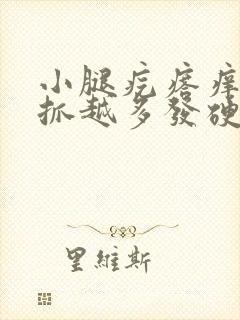 小腿疙瘩痒
抓越多發硬
里維斯